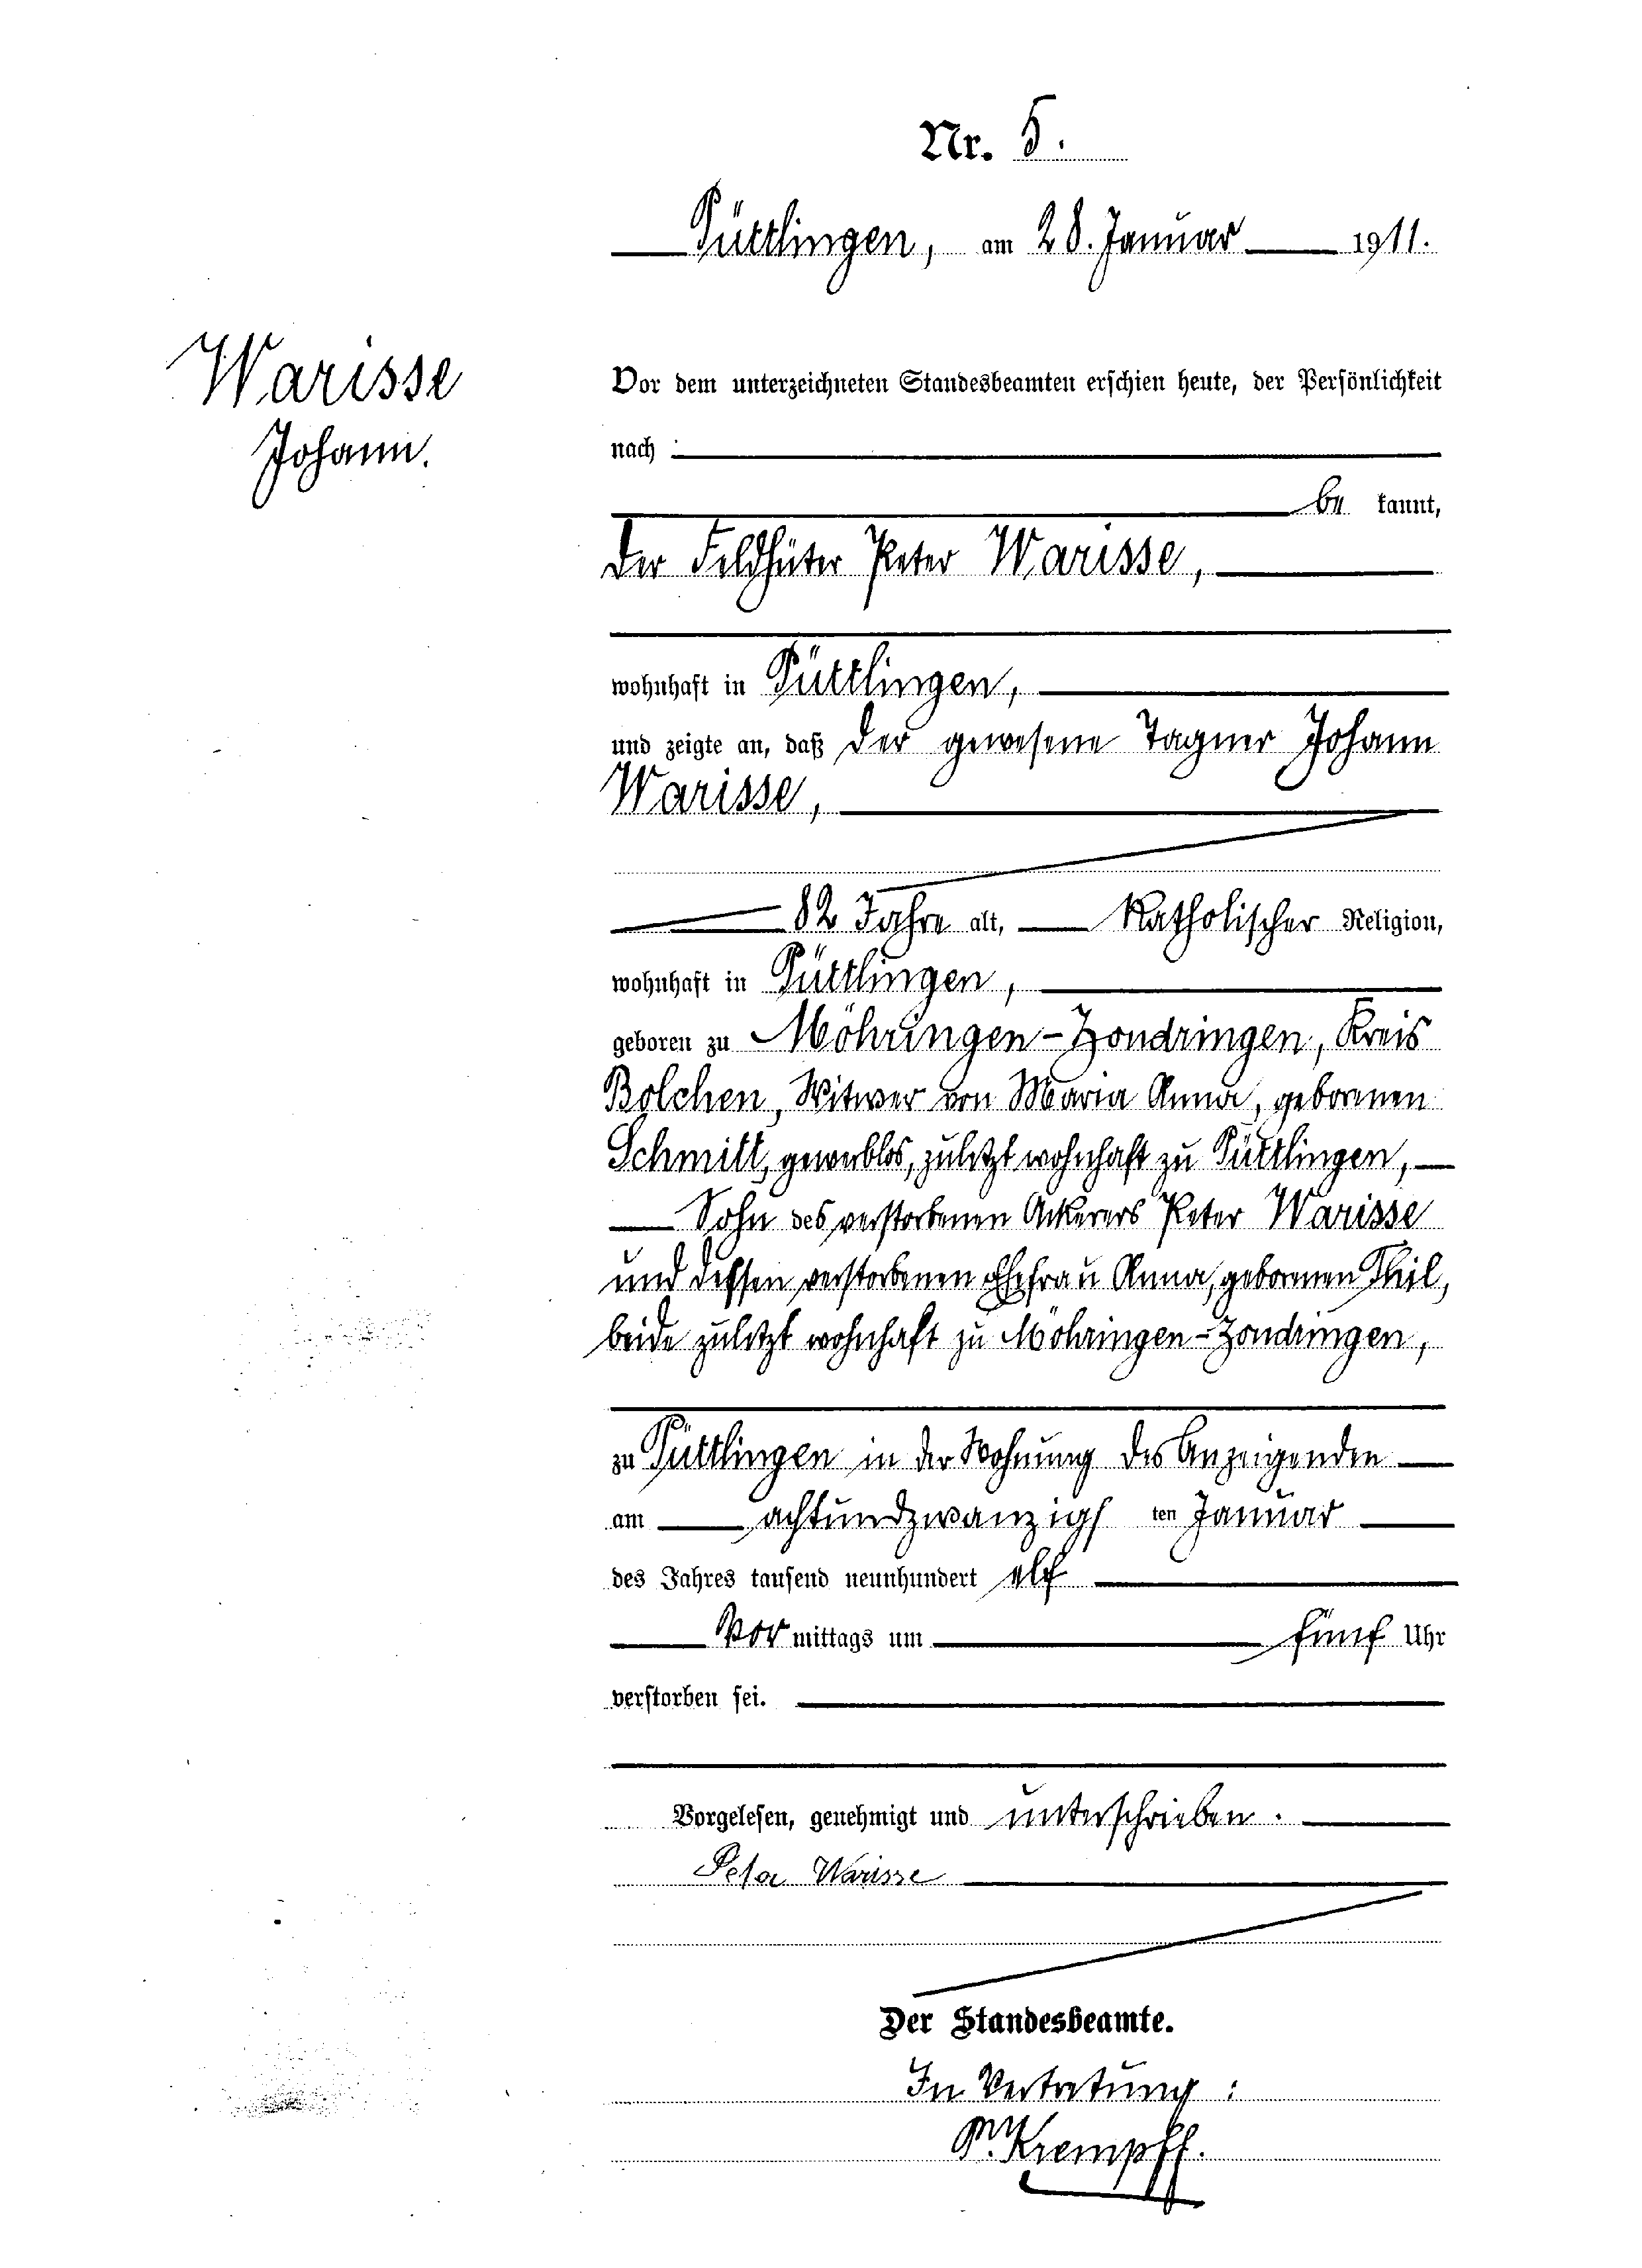 Nr. 5.
Püttlingen, am 28. Januar 1911.
Warisse
Johann.
Vor dem unterzeichneten Standesbeamten erschien heute, der Persönlichkeit
nach
be kannt,
der Feldhüter Peter Warisse,
wohnhaft in Püttlingen,
und zeigte an, daß der gewesene Tagner Johann
Warisse,
82 Jahre alt, Katholischer Religion,
wohnhaft in Püttlingen,
geboren zu Möhringen-Zondringen, Kreis
Bolchen, Witwer von Maria Anna, geborenen
Schmitt, gewerblos, zuletzt wohnhaft zu Püttlingen,
Sohn des verstorbenen Ackerers Peter Warisse
und dessen verstorbenen Ehefrau Anna, geborenen Thil,
beide zuletzt wohnhaft zu Möhringen-Zondringen,
zu Püttlingen in der Wohnung des Anzeigenden
am achtundzwanzigs ten Januar
des Jahres tausend neunhundert elf
Vor mittags um fünf Uhr
verstorben sei.
Vorgelesen, genehmigt und unterschrieben.
Peter Warisse
Der Standesbeamte.
In Vertretung:
Krempff.